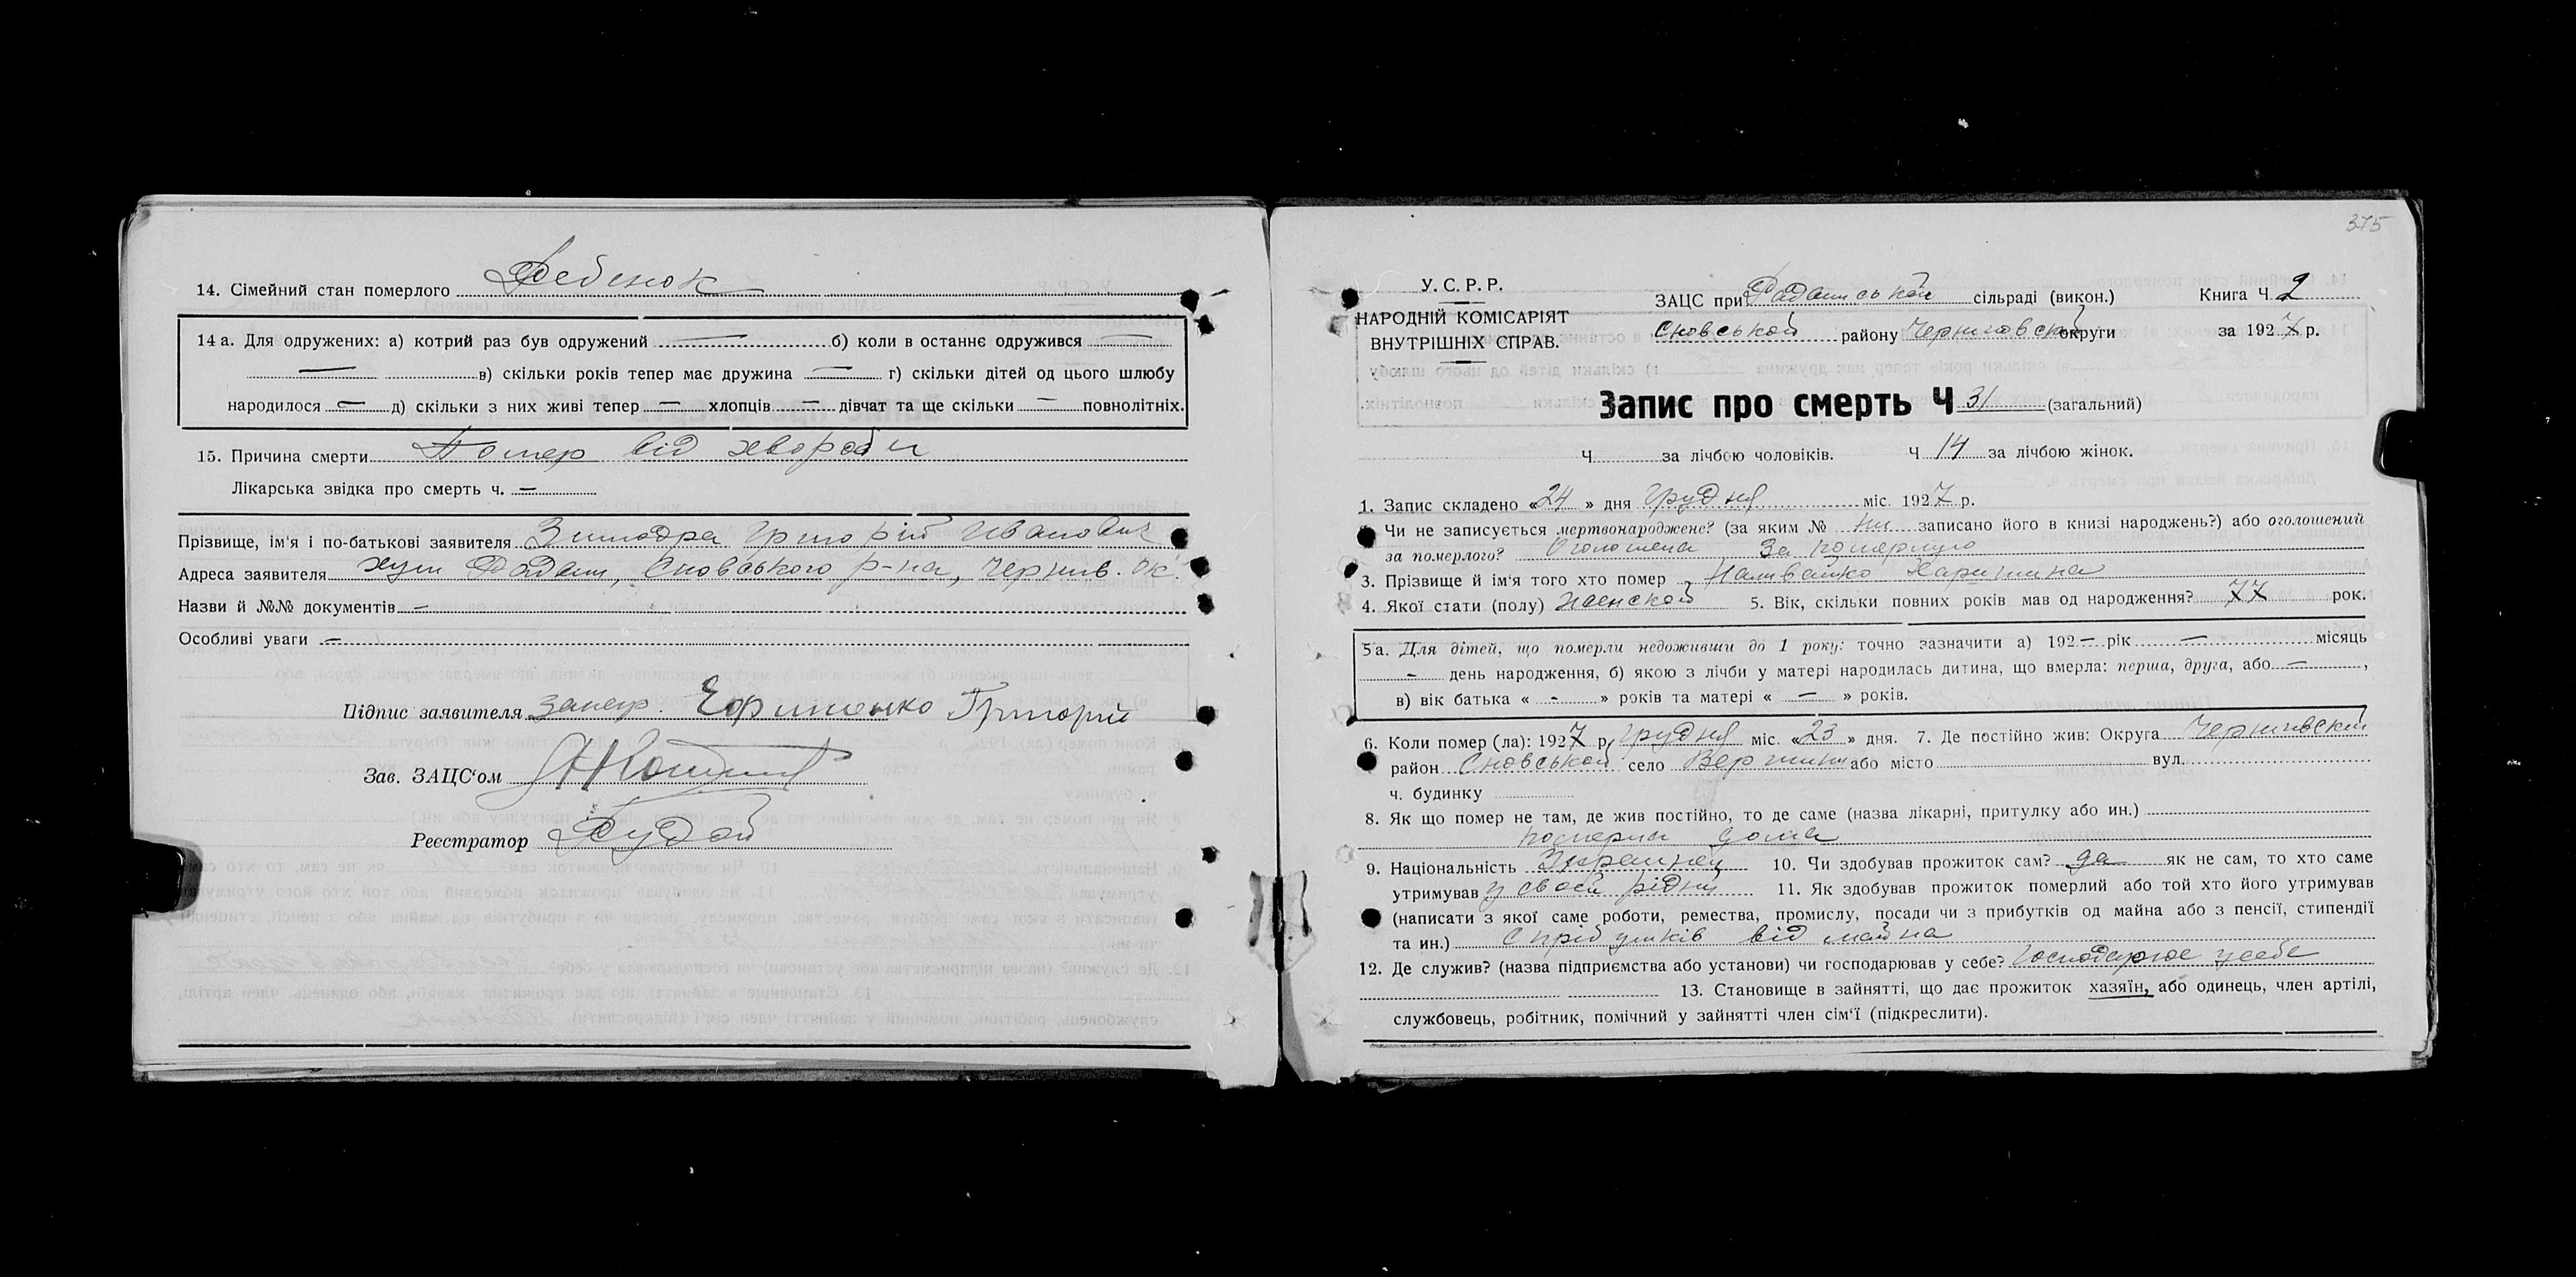 14. Сімейний стан померлого Ребенок
14 а. Для одружених: а) котрий раз був одружений — б) коли в останнє одружився —
— в) скільки років тепер має дружина — г) скільки дітей од цього шлюбу
народилося — д) скільки з них живі тепер — хлопців — дівчат та ще скільки — повнолітніх.
15. Причина смерти Помер від хвороби
Лікарська звідка про смерть ч. —
Прізвище, ім'я і по-батькові заявителя Григорій Иванович
Адреса заявителя хут , Сновського р-на, Черниг. ок.
Назви й №№ документів —
Особливі уваги —
Підпис заявителя Єфименко Григорий
Зав. ЗАЦС'ом
Реєстратор Рудой
375
У. С. Р. Р.
НАРОДНІЙ КОМІСАРІЯТ
ВНУТРІШНІХ СПРАВ.
ЗАЦС при сільраді (викон.) Книга Ч 2
Сновськой району Черниговськой округи за 1927 р.
Запис про смерть Ч 31 (загальний)
Ч за лічбою чоловіків. Ч 14 за лічбою жінок.
1. Запис складено « 24 » дня Грудня міс. 1927 р.
Чи не записується мертвонароджене? (за яким № ни записано його в книзі народжень?) або оголошений
за померлого? Оголошена за померлую
3. Прізвище й ім'я того хто помер Наливайко Харитина
4. Якої стати (полу) женской 5. Вік, скільки повних років мав од народження? 77 рок.
5 а. Для дітей, що померли недоживши до 1 року: точно зазначити а) 192 — рік — місяць
— день народження, б) якою з лічби у матері народилась дитина, що вмерла: перша, друга, або — ,
в) вік батька « - » років та матері « — » років.
6. Коли помер (ла): 1927 р. Грудня міс. « 23 » дня. 7. Де постійно жив: Округа Чернигівской
район Сновськой село або місто вул.
ч. будинку
8. Як що помер не там, де жив постійно, то де саме (назва лікарні, притулку або ин.)
померла дома
9. Національність 10. Чи здобував прожиток сам? да як не сам, то хто саме
утримував у своєй рідні 11. Як здобував прожиток померлий або той хто його утримував
(написати з якої саме роботи, ремества, промислу, посади чи з прибутків од майна або з пенсії, стипендії
та ин.) с прібутків від майна
12. Де служив? (назва підприємства або установи) чи господарював у себе? Господарює у себе
13. Становище в зайнятті, що дає прожиток хазяїн, або одинець, член артілі,
службовець, робітник, помічний у зайнятті член сім'ї (підкреслити).